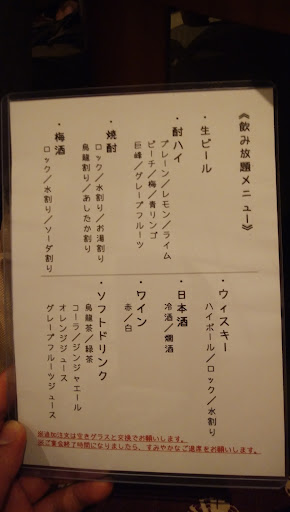 《飲み放題メニュー》
・生ビール
・酎ハイ
プレーン／レモン／ライム
ピーチ／梅／青リンゴ
巨峰／グレープフルーツ
・焼酎
ロック／水割り／お湯割り
烏龍割り／あしたか割り
・梅酒
ロック／水割り／ソーダ割り
・ウィスキー
ハイボール／ロック／水割り
・日本酒
冷酒／燗酒
・ワイン
赤／白
・ソフトドリンク
烏龍茶／緑茶
コーラ／ジンジャエール
オレンジジュース
グレープフルーツジュース
※追加注文は空きグラスと交換でお願いします。
※ご宴会終了時間になりましたら、すみやかなご退席をお願いします。